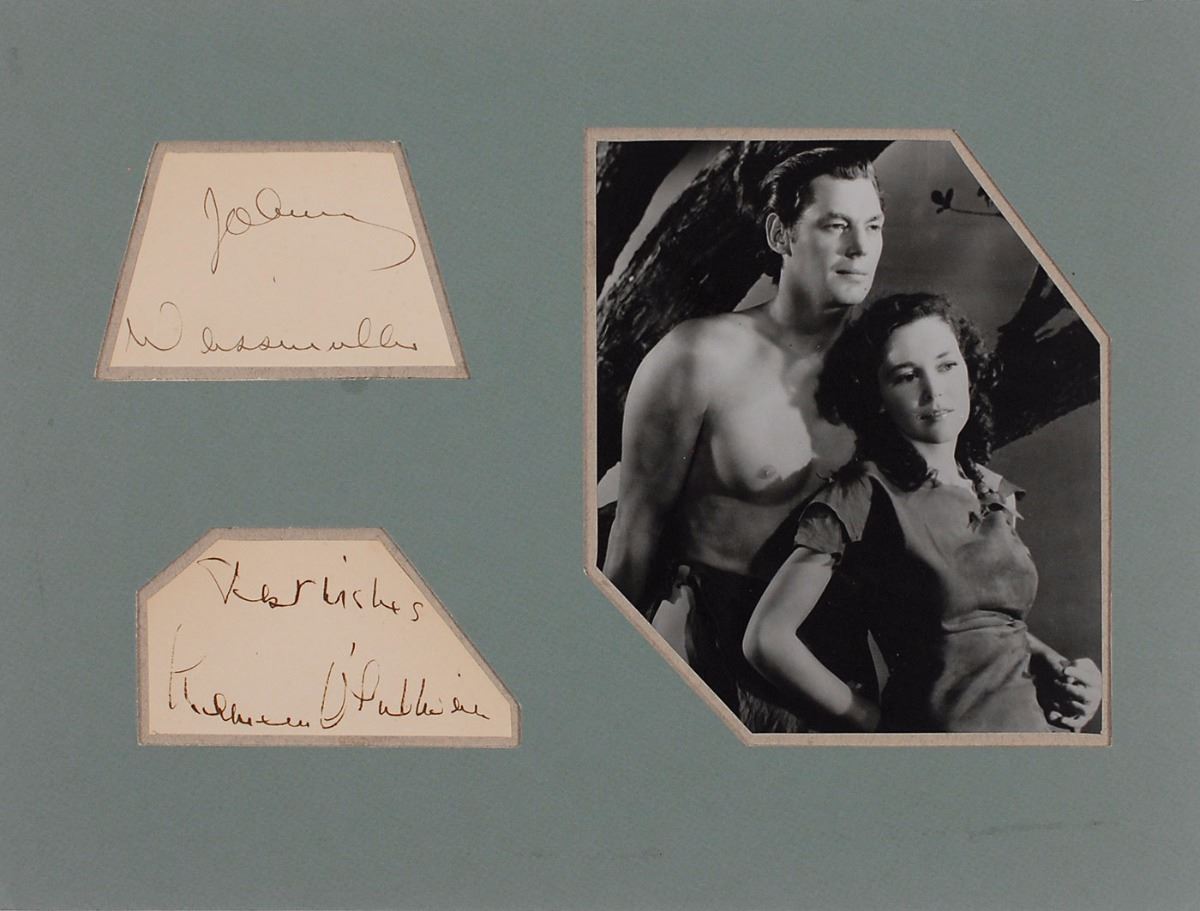 Johnny
Weissmuller
Best Wishes
Maureen O'Sullivan